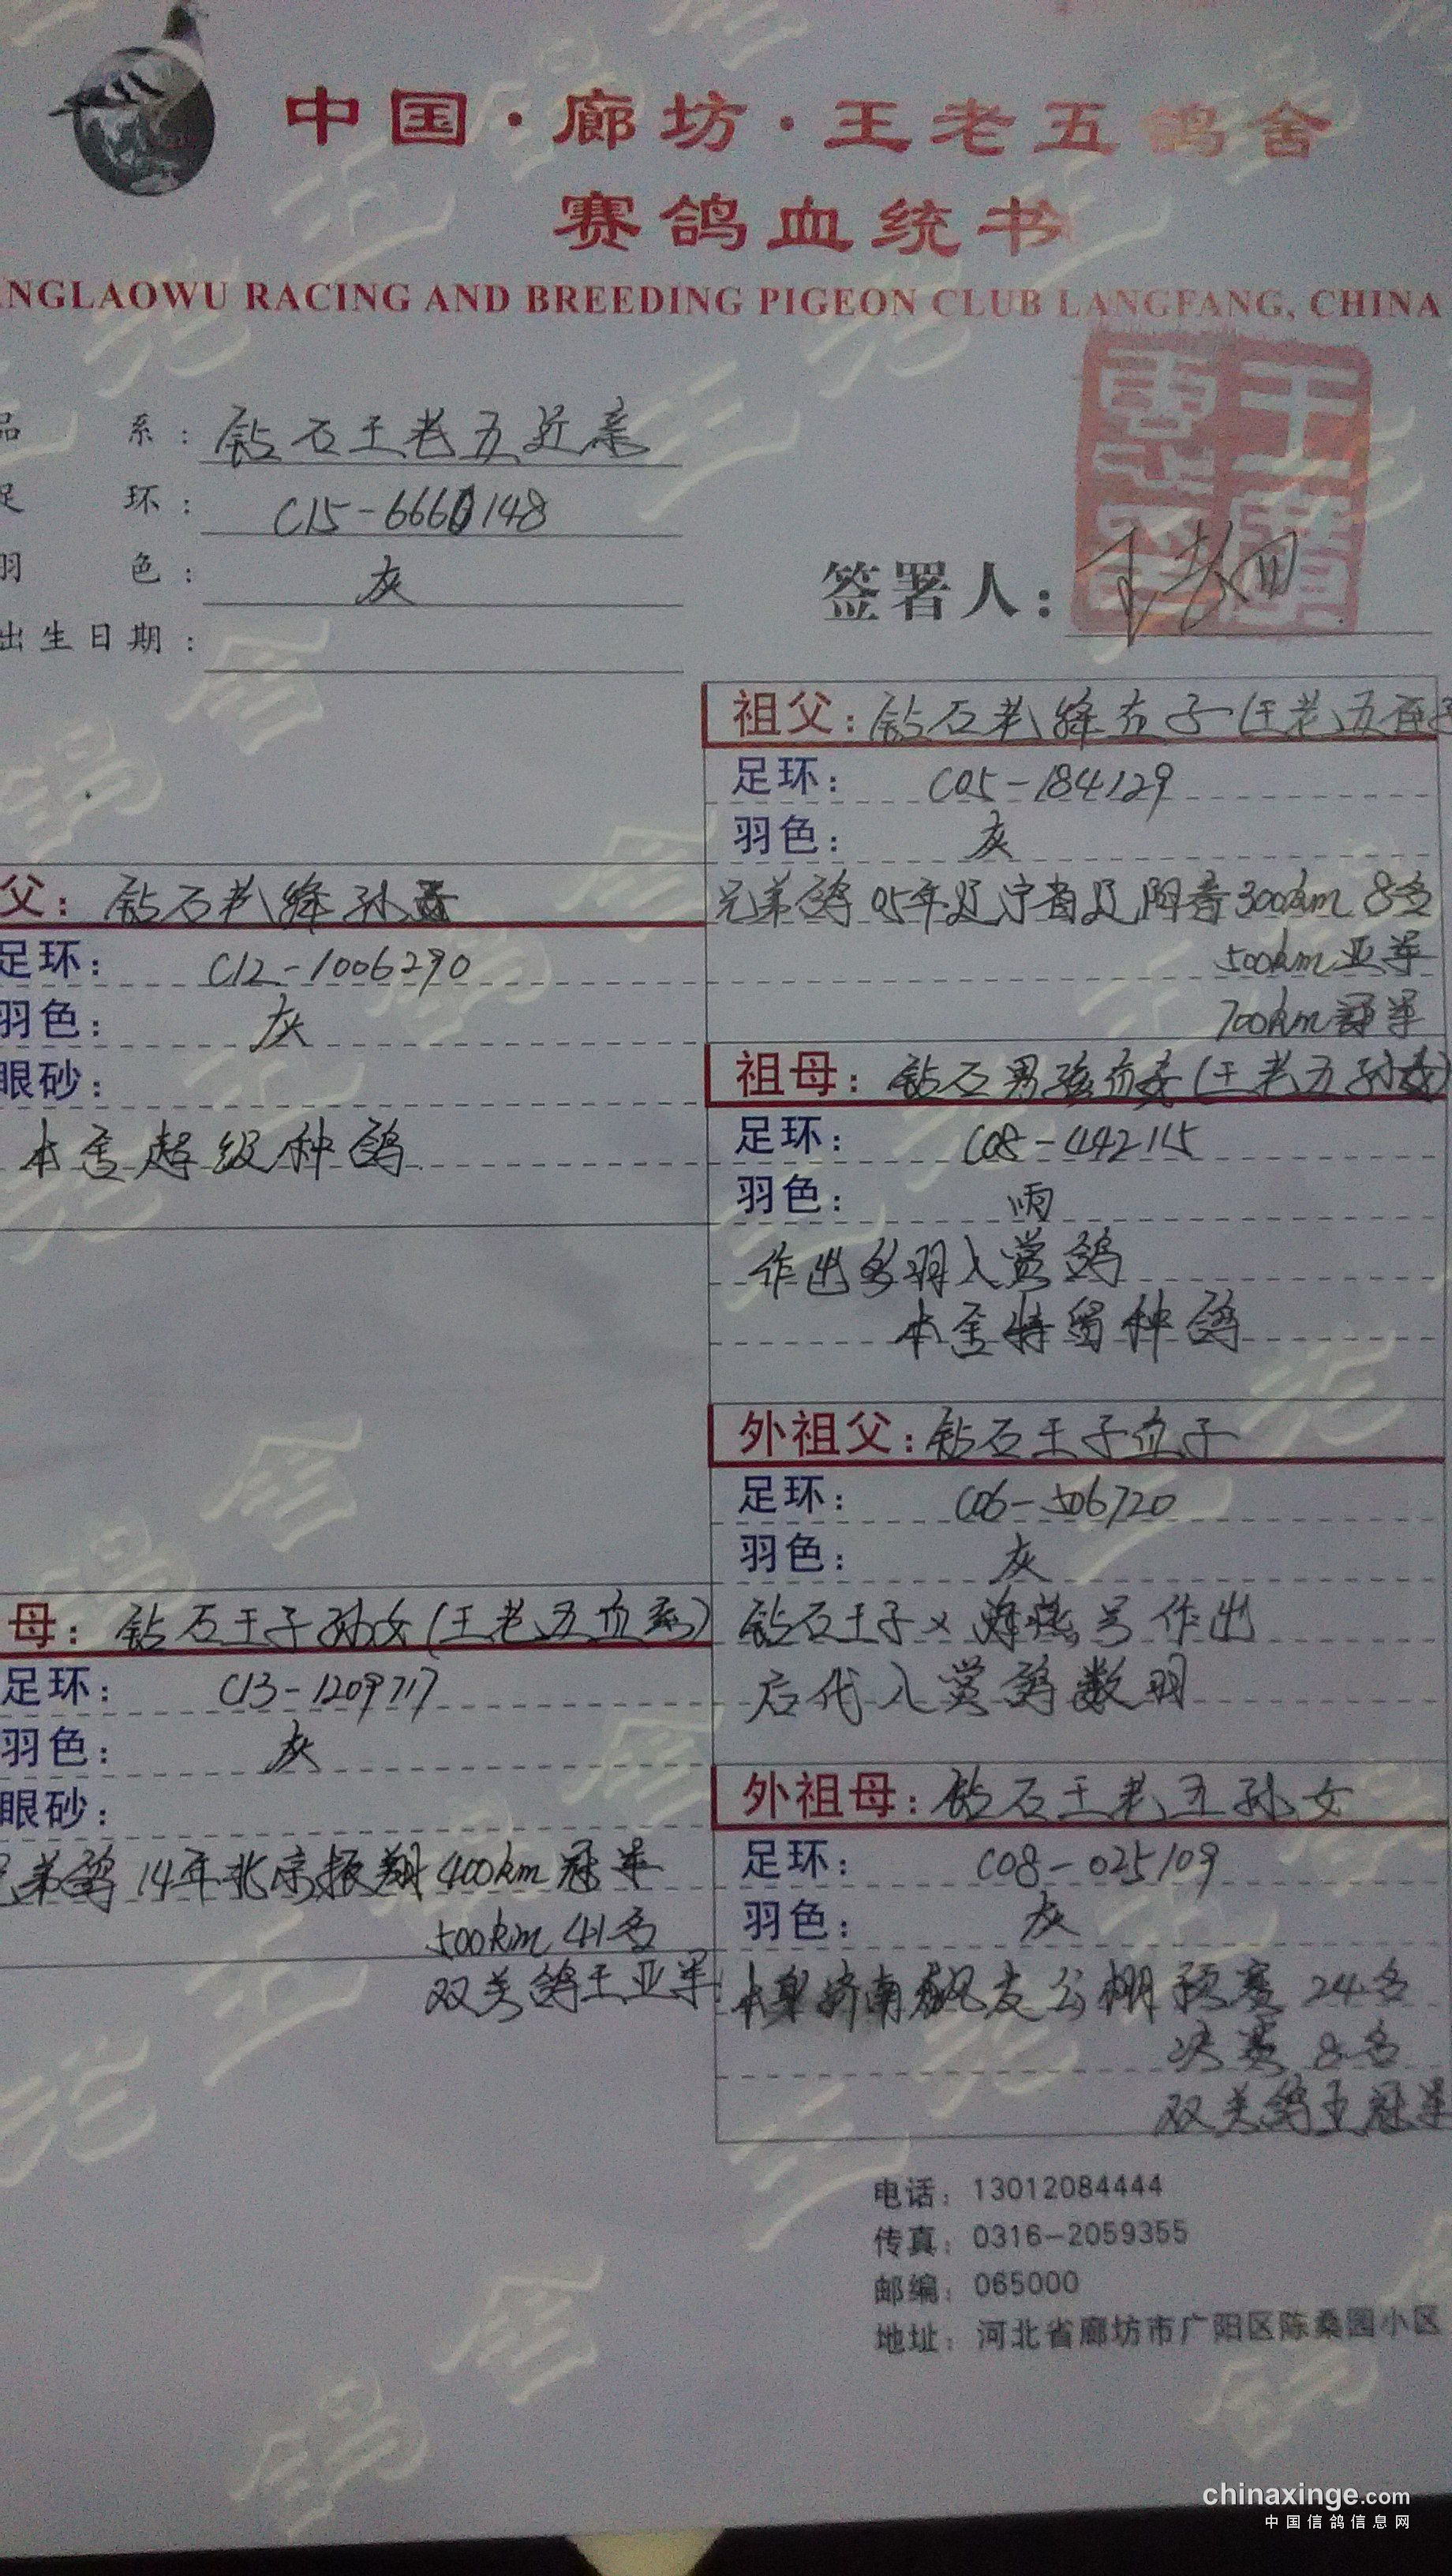 中国·廊坊·王老五鸽舍
赛鸽血统书
NGLAOWU RACING AND BREEDING PIGEON CLUB LANGFANG, CHINA
系: 钻石王老五近亲
环: C15-6660148
羽 色: 灰
出生日期:
签署人:
父: 钻石老绛孙
足环: C12-1006290
羽色: 灰
眼砂:
本舍超级种鸽
母: 钻石王子孙女(王老五血系)
足环: C13-1209717
羽色: 灰
眼砂:
弟鸽14年北京振翔400km冠军
500km 41名
双关鸽王亚军
祖父: 钻石老绛直子(王老五直
足环: C05-184129
羽色: 灰
兄弟鸽05年辽宁省辽阳市300km 8名
500km亚军
700km冠军
祖母: 钻石男孩直女(王老五孙女)
足环: C08-442115
羽色: 雨
作出多羽入赏鸽
本舍特留种鸽
外祖父: 钻石王子直子
足环: C06-506720
羽色: 灰
钻石王子×号作出
后代入赏鸽数羽
外祖母: 钻石王老五孙女
足环: C08-025109
羽色: 灰
济南友公棚预赛24名
决赛8名
双关鸽王冠军
电话: 13012084444
传真: 0316-2059355
邮编: 065000
地址: 河北省廊坊市广阳区陈桑园小区
chinaxinge.com
中国信鸽信息网